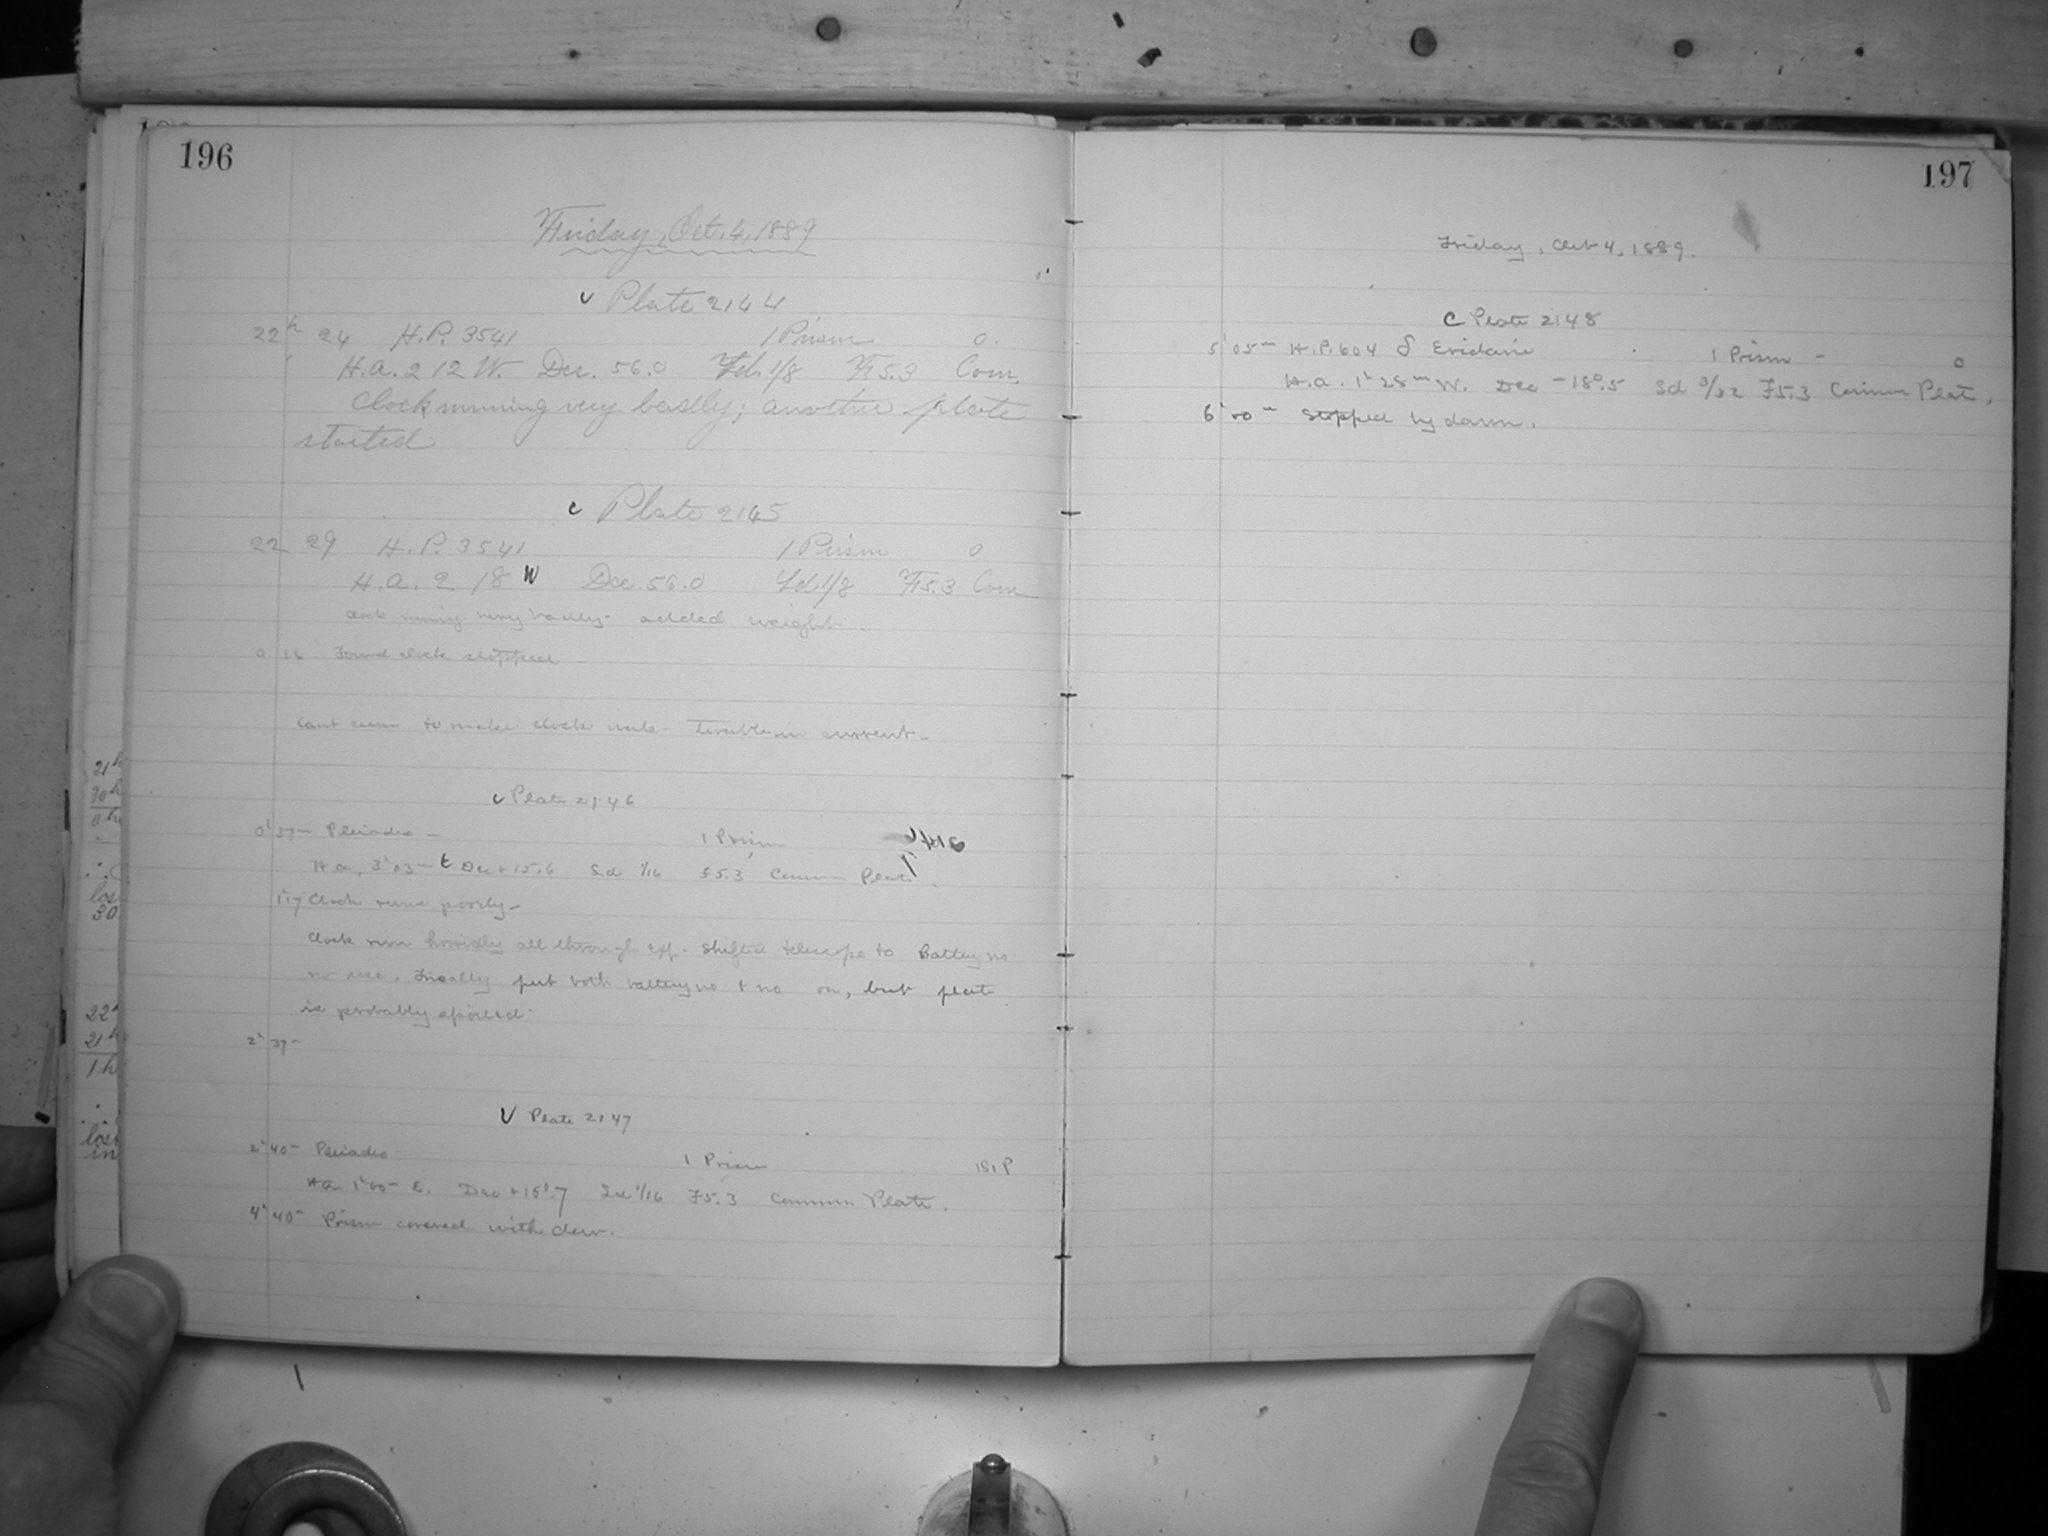 196
Friday, Oct. 4, 1889
v Plate 2144
22h 24 H.P. 3541 1 Prism 0.
H.A. 2 12 W. Dec. 56.0 Sd. 1/8 F5.3 Com.
Clock running very badly; another plate
started
c Plate 2145
22 29 H.P. 3541 1 Prism 0
H.A. 2 18 W Dec. 56.0 Sd 1/8 F5.3 Com
clock running very badly - added weight.
0 16 Found clock stopped
Cant seem to make clock Trouble in current -
v Plate 2146
0h 37m Pleiades - 1 Prism
H.A. 3h 03m E Dec + 15.6 Sd 1/16 F5.3 Common Plate.
1h 17 Clock runs poorly -
Clock run horridly all through exp. Shifted telescope to Battery no
no use. Finally put both battery no + no on, but plate
is probably spoiled.
2h 37m
V Plate 2147
2h 40m Pleiades 1 Prism 181 P
H.A. 1h 00m E. Dec + 15°.7 Sd 1/16 F5.3 Common Plate.
4h 40m Prism covered with dew.
197
Friday, Oct 4, 1889.
C Plate 2148
5h 05m H.P. 604 δ Eridani 1 Prism - 0
H.A. 1h 28m W. Dec -18°.5 Sd 3/32 F5.3 Common Plate.
6h 00m Stopped by dawn.